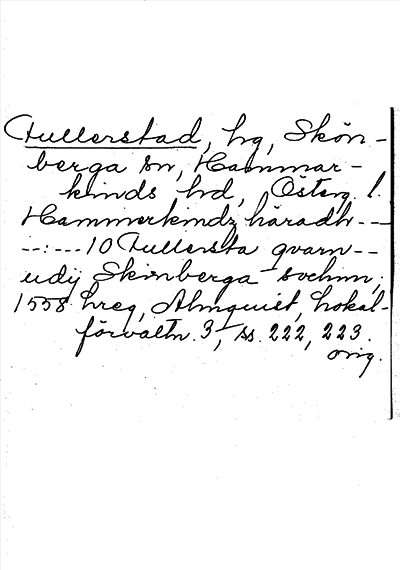 Fullerstad, hg, Skön-
berga sn, Hammar-
kinds hd, Österg. l.
Hammerkindz häradh --
--:--- 10 Fullersta qvarn--
udij Skönberga sochnn;
1558 hreg, Almquist, Lokal-
förvaltn. 3, ss. 222, 223.
orig.